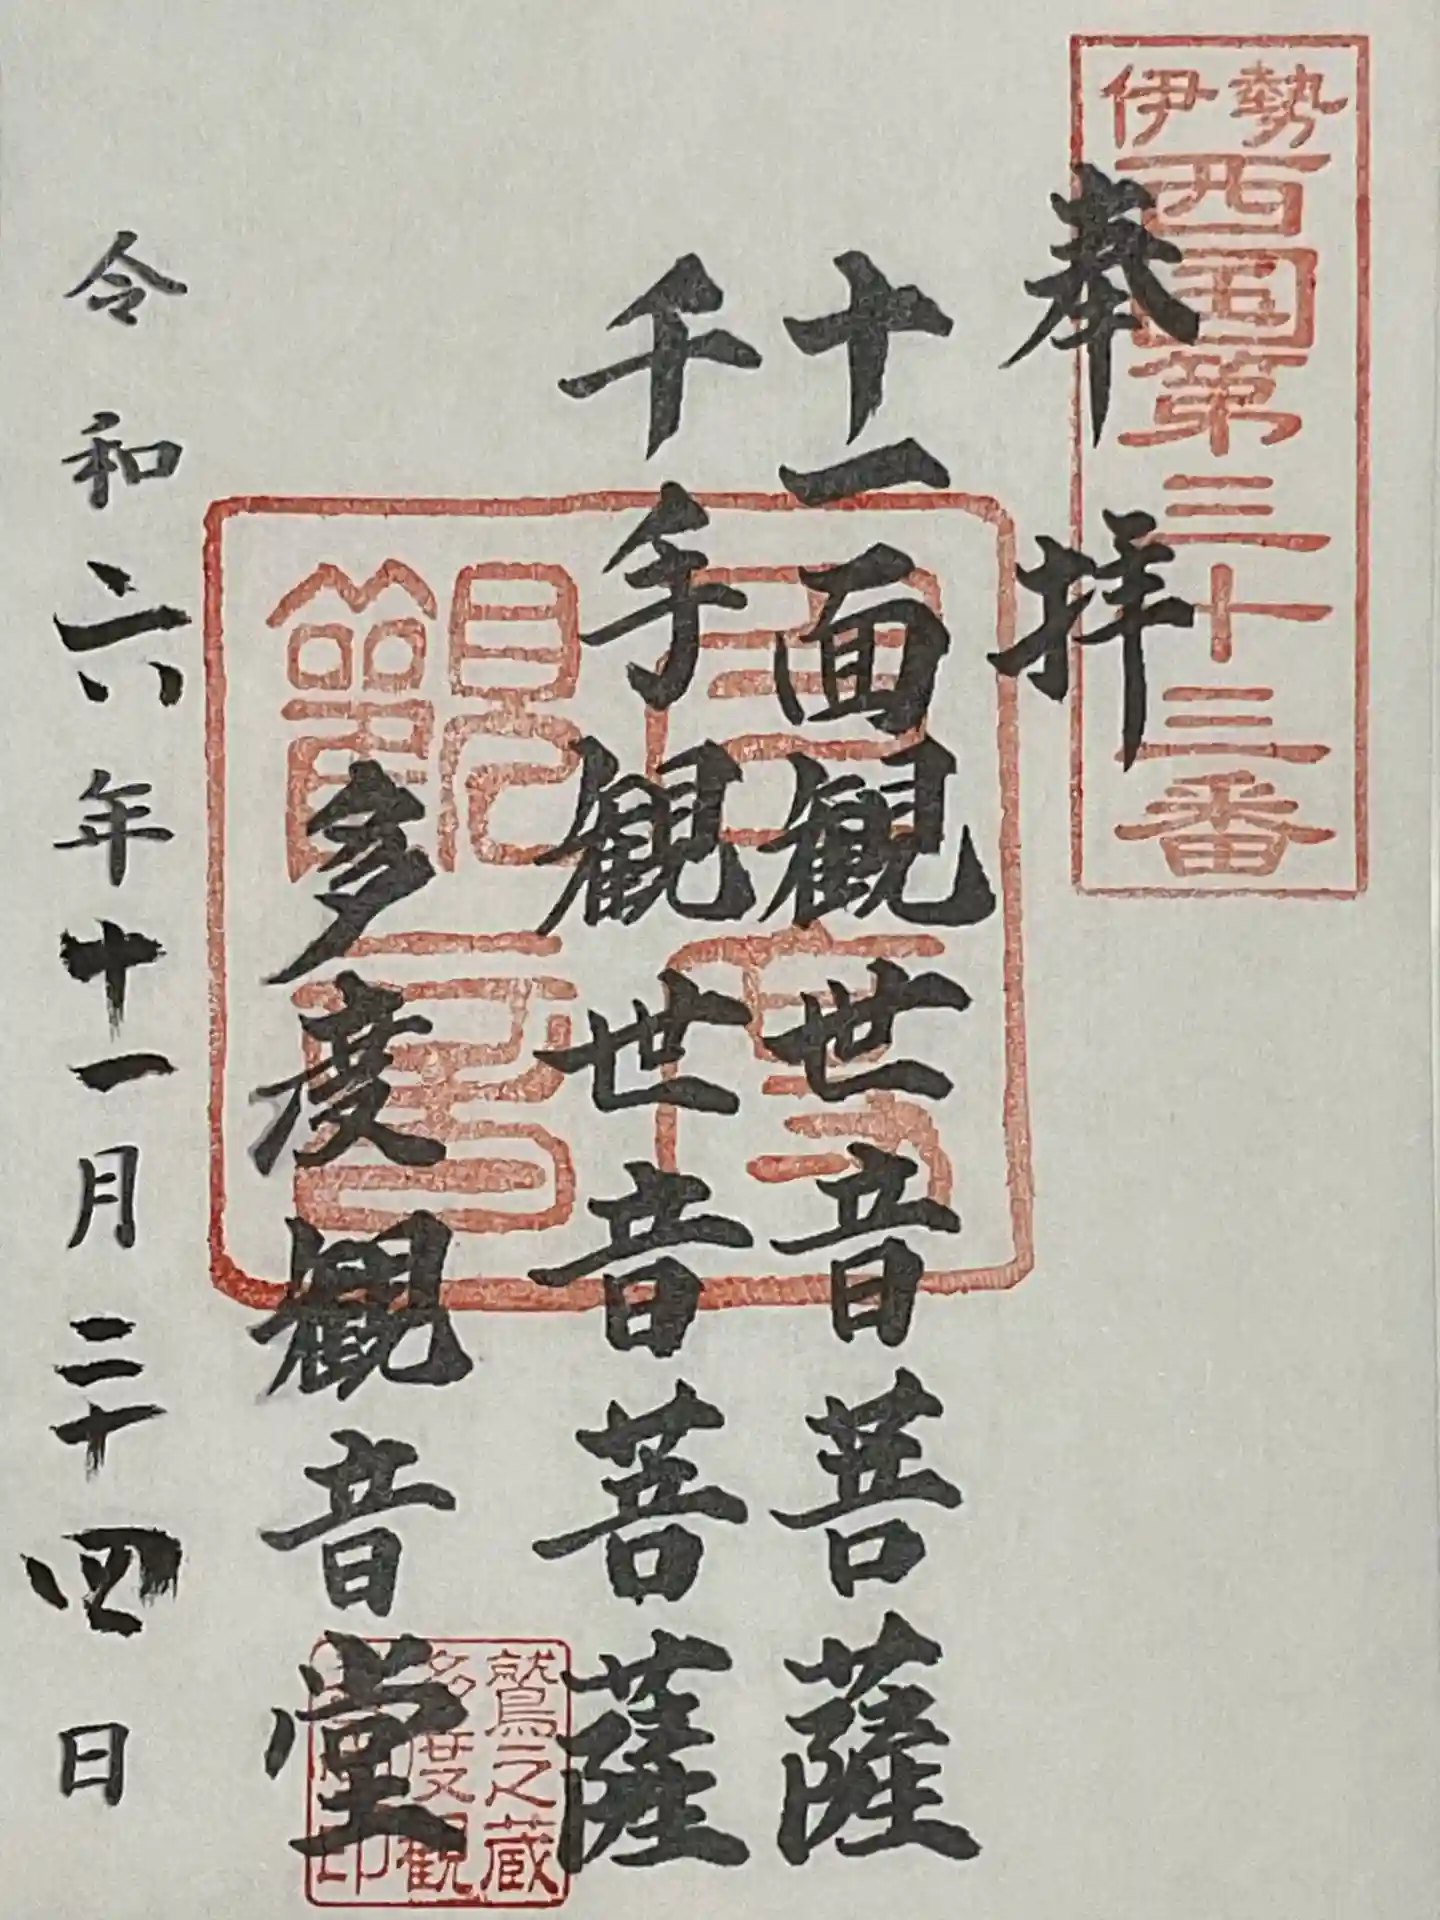 伊勢
西国第三十三番
奉拝
十一面観世音菩薩
千手観世音菩薩
多度観音堂
令和六年十一月二十四日
鷲之蔵
多度観
印